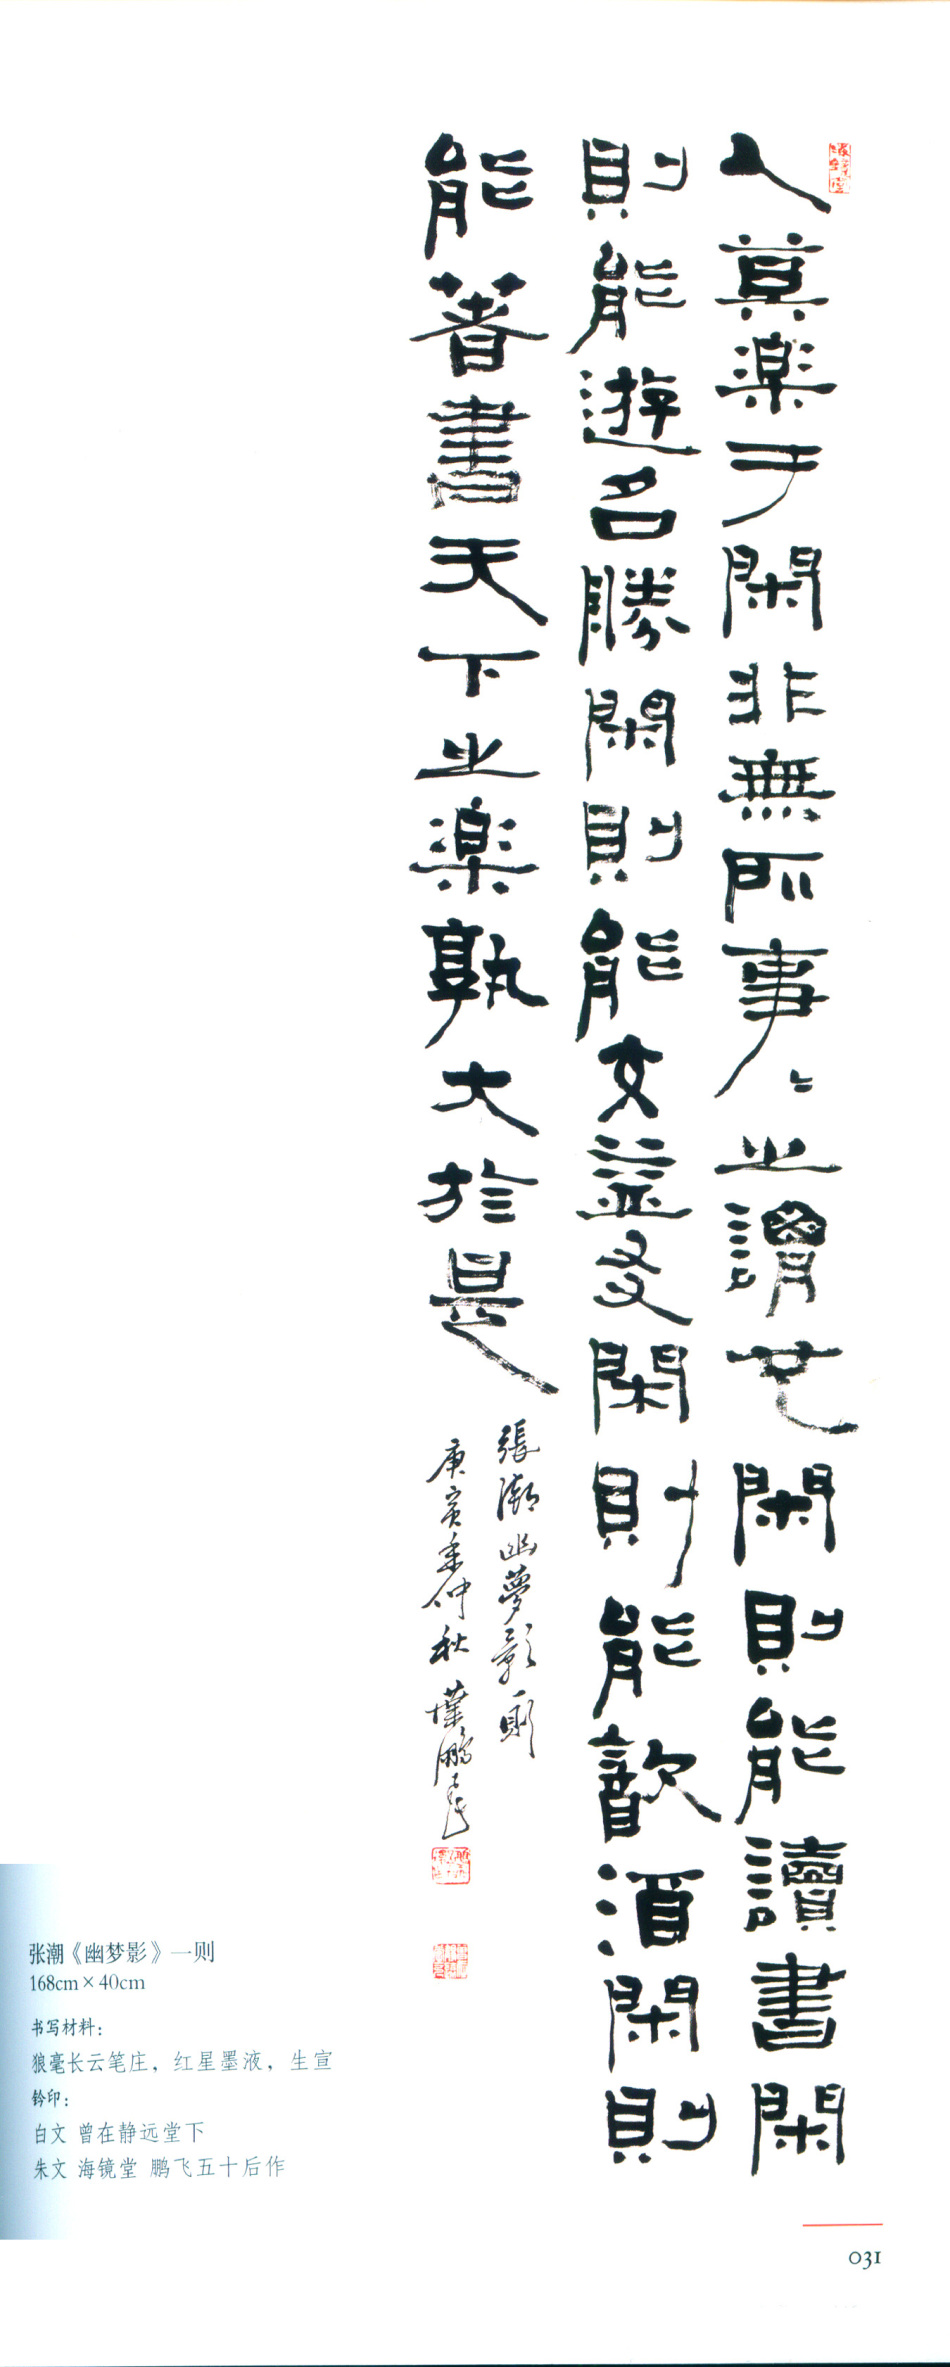 人莫樂于閑非無所事〻之謂也閑則能讀書閑
則能遊名勝閑則能交益友閑則能飲酒閑則
能著書天下之樂孰大於是
張潮幽夢影一則
庚寅年仲秋 葉鵬飛
张潮《幽梦影》一则
168cm×40cm
书写材料：
狼毫长云笔庄，红星墨液，生宣
钤印：
白文 曾在静远堂下
朱文 海镜堂 鹏飞五十后作
031